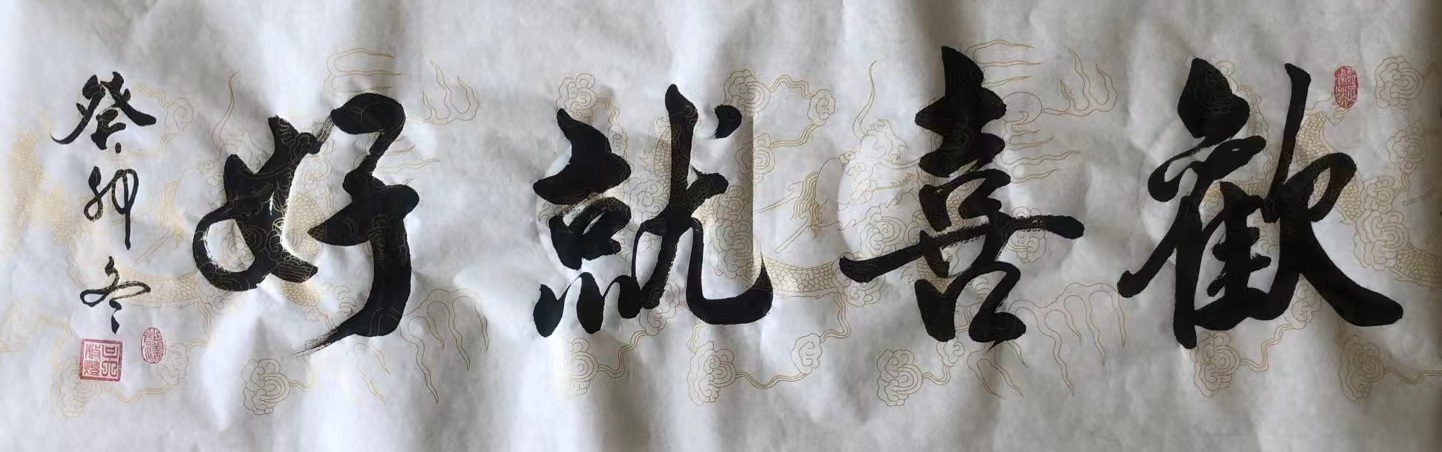 歡喜就好
癸卯冬